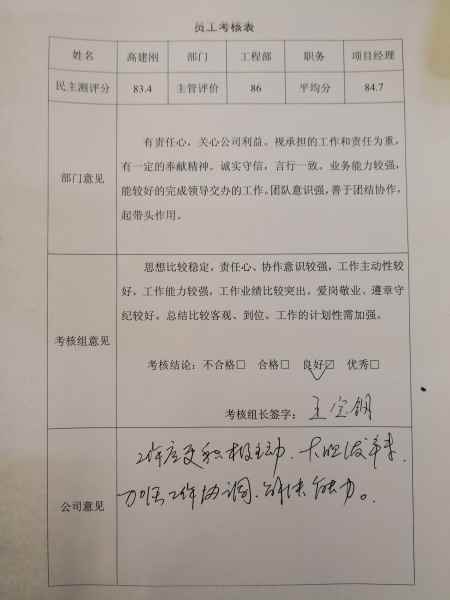 员工考核表
姓名 高建刚 部门 工程部 职务 项目经理
民主测评分 83.4 主管评价 86 平均分 84.7
部门意见
有责任心，关心公司利益。视承担的工作和责任为重，
有一定的奉献精神。诚实守信，言行一致。业务能力较强，
能较好的完成领导交办的工作。团队意识强，善于团结协作，
起带头作用。
考核组意见
思想比较稳定，责任心、协作意识较强，工作主动性较
好，工作能力较强，工作业绩比较突出。爱岗敬业、遵章守
纪较好。总结比较客观、到位。工作的计划性需加强。
考核结论：不合格□ 合格□ 良好☑ 优秀□
考核组长签字：王宝钢
公司意见
工作应更积极主动，大胆
加强工作协调、解决能力。